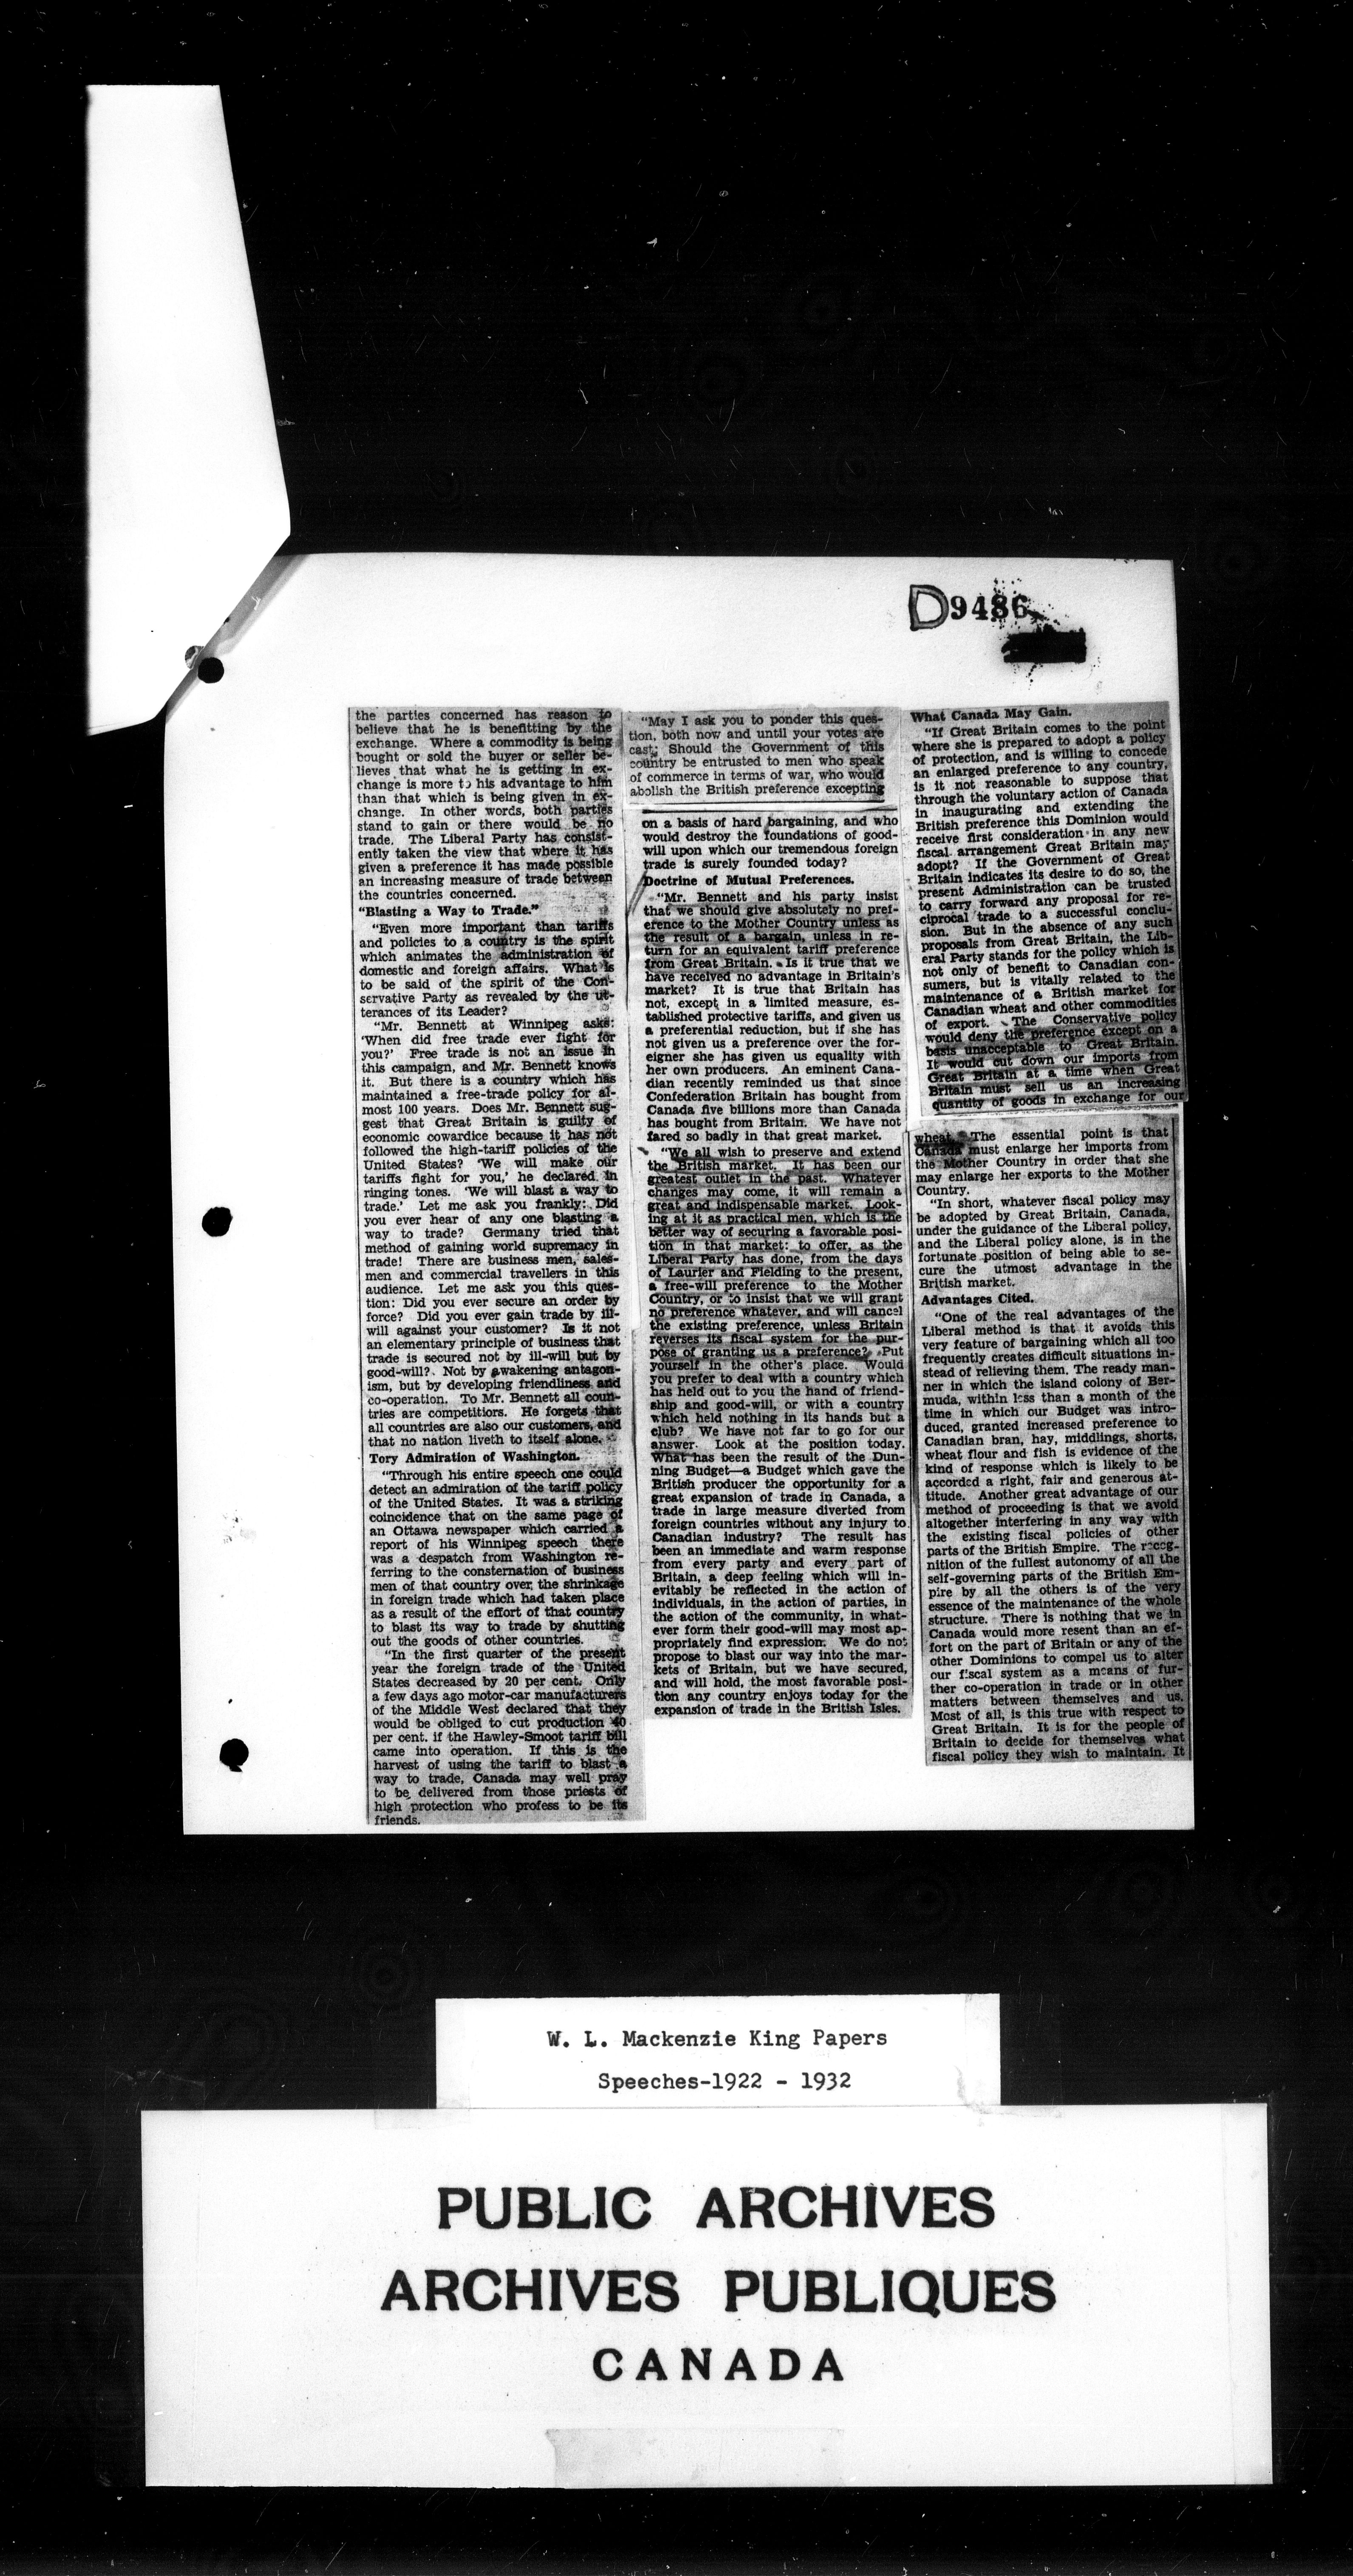 D9486
the parties concerned has reason to
believe that he is benefitting by the
exchange. Where a commodity is being
bought or sold the buyer or seller be-
lieves that what he is getting in ex-
change is more to his advantage to him
than that which is being given in ex-
change. In other words, both parties
stand to gain or there would be no
trade. The Liberal Party has consist-
ently taken the view that where it has
given a preference it has made possible
an increasing measure of trade between
the countries concerned.
"Blasting a Way to Trade."
"Even more important than tariffs
and policies to a country is the spirit
which animates the administration of
domestic and foreign affairs. What is
to be said of the spirit of the Con-
servative Party as revealed by the ut-
terances of its Leader?
"Mr. Bennett at Winnipeg asks:
'When did free trade ever fight for
you?' Free trade is not an issue in
this campaign, and Mr. Bennett knows
it. But there is a country which has
maintained a free-trade policy for al-
most 100 years. Does Mr. Bennett sug-
gest that Great Britain is guilty of
economic cowardice because it has not
followed the high-tariff policies of the
United States? 'We will make our
tariffs fight for you,' he declared in
ringing tones. 'We will blast a way to
trade.' Let me ask you frankly: Did
you ever hear of any one blasting a
way to trade? Germany tried that
method of gaining world supremacy in
trade! There are business men, sales-
men and commercial travellers in this
audience. Let me ask you this ques-
tion: Did you ever secure an order by
force? Did you ever gain trade by ill-
will against your customer? Is it not
an elementary principle of business that
trade is secured not by ill-will but by
good-will? Not by awakening antagon-
ism, but by developing friendliness and
co-operation. To Mr. Bennett all coun-
tries are competitiors. He forgets that
all countries are also our customers, and
that no nation liveth to itself alone.
Tory Admiration of Washington.
"Through his entire speech one could
detect an admiration of the tariff policy
of the United States. It was a striking
coincidence that on the same page of
an Ottawa newspaper which carried a
report of his Winnipeg speech there
was a despatch from Washington re-
ferring to the consternation of business
men of that country over the shrinkage
in foreign trade which had taken place
as a result of the effort of that country
to blast its way to trade by shutting
out the goods of other countries.
"In the first quarter of the present
year the foreign trade of the United
States decreased by 20 per cent. Only
a few days ago motor-car manufacturers
of the Middle West declared that they
would be obliged to cut production 40
per cent. if the Hawley-Smoot tariff bill
came into operation. If this is the
harvest of using the tariff to blast a
way to trade, Canada may well pray
to be delivered from those priests of
high protection who profess to be its
friends.
"May I ask you to ponder this ques-
tion, both now and until your votes are
cast: Should the Government of this
country be entrusted to men who speak
of commerce in terms of war, who would
abolish the British preference excepting
on a basis of hard bargaining, and who
would destroy the foundations of good-
will upon which our tremendous foreign
trade is surely founded today?
Doctrine of Mutual Preferences.
"Mr. Bennett and his party insist
that we should give absolutely no pref-
erence to the Mother Country unless as
the result of a bargain, unless in re-
turn for an equivalent tariff preference
from Great Britain. Is it true that we
have received no advantage in Britain's
market? It is true that Britain has
not, except in a limited measure, es-
tablished protective tariffs, and given us
a preferential reduction, but if she has
not given us a preference over the for-
eigner she has given us equality with
her own producers. An eminent Cana-
dian recently reminded us that since
Confederation Britain has bought from
Canada five billions more than Canada
has bought from Britain. We have not
fared so badly in that great market.
"We all wish to preserve and extend
the British market. It has been our
greatest outlet in the past. Whatever
changes may come, it will remain a
great and indispensable market. Look-
ing at it as practical men, which is the
better way of securing a favorable posi-
tion in that market: to offer, as the
Liberal Party has done, from the days
of Laurier and Fielding to the present,
a free-will preference to the Mother
Country, or to insist that we will grant
no preference whatever, and will cancel
the existing preference, unless Britain
reverses its fiscal system for the pur-
pose of granting us a preference? Put
yourself in the other's place. Would
you prefer to deal with a country which
has held out to you the hand of friend-
ship and good-will, or with a country
which held nothing in its hands but a
club? We have not far to go for our
answer. Look at the position today.
What has been the result of the Dun-
ning Budget—a Budget which gave the
British producer the opportunity for a
great expansion of trade in Canada, a
trade in large measure diverted from
foreign countries without any injury to
Canadian industry? The result has
been an immediate and warm response
from every party and every part of
Britain, a deep feeling which will in-
evitably be reflected in the action of
individuals, in the action of parties, in
the action of the community, in what-
ever form their good-will may most ap-
propriately find expression. We do not
propose to blast our way into the mar-
kets of Britain, but we have secured,
and will hold, the most favorable posi-
tion any country enjoys today for the
expansion of trade in the British Isles.
What Canada May Gain.
"If Great Britain comes to the point
where she is prepared to adopt a policy
of protection, and is willing to concede
an enlarged preference to any country,
is it not reasonable to suppose that
through the voluntary action of Canada
in inaugurating and extending the
British preference this Dominion would
receive first consideration in any new
fiscal arrangement Great Britain may
adopt? If the Government of Great
Britain indicates its desire to do so, the
present Administration can be trusted
to carry forward any proposal for re-
ciprocal trade to a successful conclu-
sion. But in the absence of any such
proposals from Great Britain, the Lib-
eral Party stands for the policy which is
not only of benefit to Canadian con-
sumers, but is vitally related to the
maintenance of a British market for
Canadian wheat and other commodities
of export. The Conservative policy
would deny the preference except on a
basis unacceptable to Great Britain.
It would cut down our imports from
Great Britain at a time when Great
Britain must sell us an increasing
quantity of goods in exchange for our
wheat. The essential point is that
Canada must enlarge her imports from
the Mother Country in order that she
may enlarge her exports to the Mother
Country.
"In short, whatever fiscal policy may
be adopted by Great Britain, Canada,
under the guidance of the Liberal policy,
and the Liberal policy alone, is in the
fortunate position of being able to se-
cure the utmost advantage in the
British market.
Advantages Cited.
"One of the real advantages of the
Liberal method is that it avoids this
very feature of bargaining which all too
frequently creates difficult situations in-
stead of relieving them. The ready man-
ner in which the island colony of Ber-
muda, within less than a month of the
time in which our Budget was intro-
duced, granted increased preference to
Canadian bran, hay, middlings, shorts,
wheat flour and fish is evidence of the
kind of response which is likely to be
accorded a right, fair and generous at-
titude. Another great advantage of our
method of proceeding is that we avoid
altogether interfering in any way with
the existing fiscal policies of other
parts of the British Empire. The recog-
nition of the fullest autonomy of all the
self-governing parts of the British Em-
pire by all the others is of the very
essence of the maintenance of the whole
structure. There is nothing that we in
Canada would more resent than an ef-
fort on the part of Britain or any of the
other Dominions to compel us to alter
our fiscal system as a means of fur-
ther co-operation in trade or in other
matters between themselves and us.
Most of all, is this true with respect to
Great Britain. It is for the people of
Britain to decide for themselves what
fiscal policy they wish to maintain. It
W. L. Mackenzie King Papers
Speeches-1922 - 1932
PUBLIC ARCHIVES
ARCHIVES PUBLIQUES
CANADA